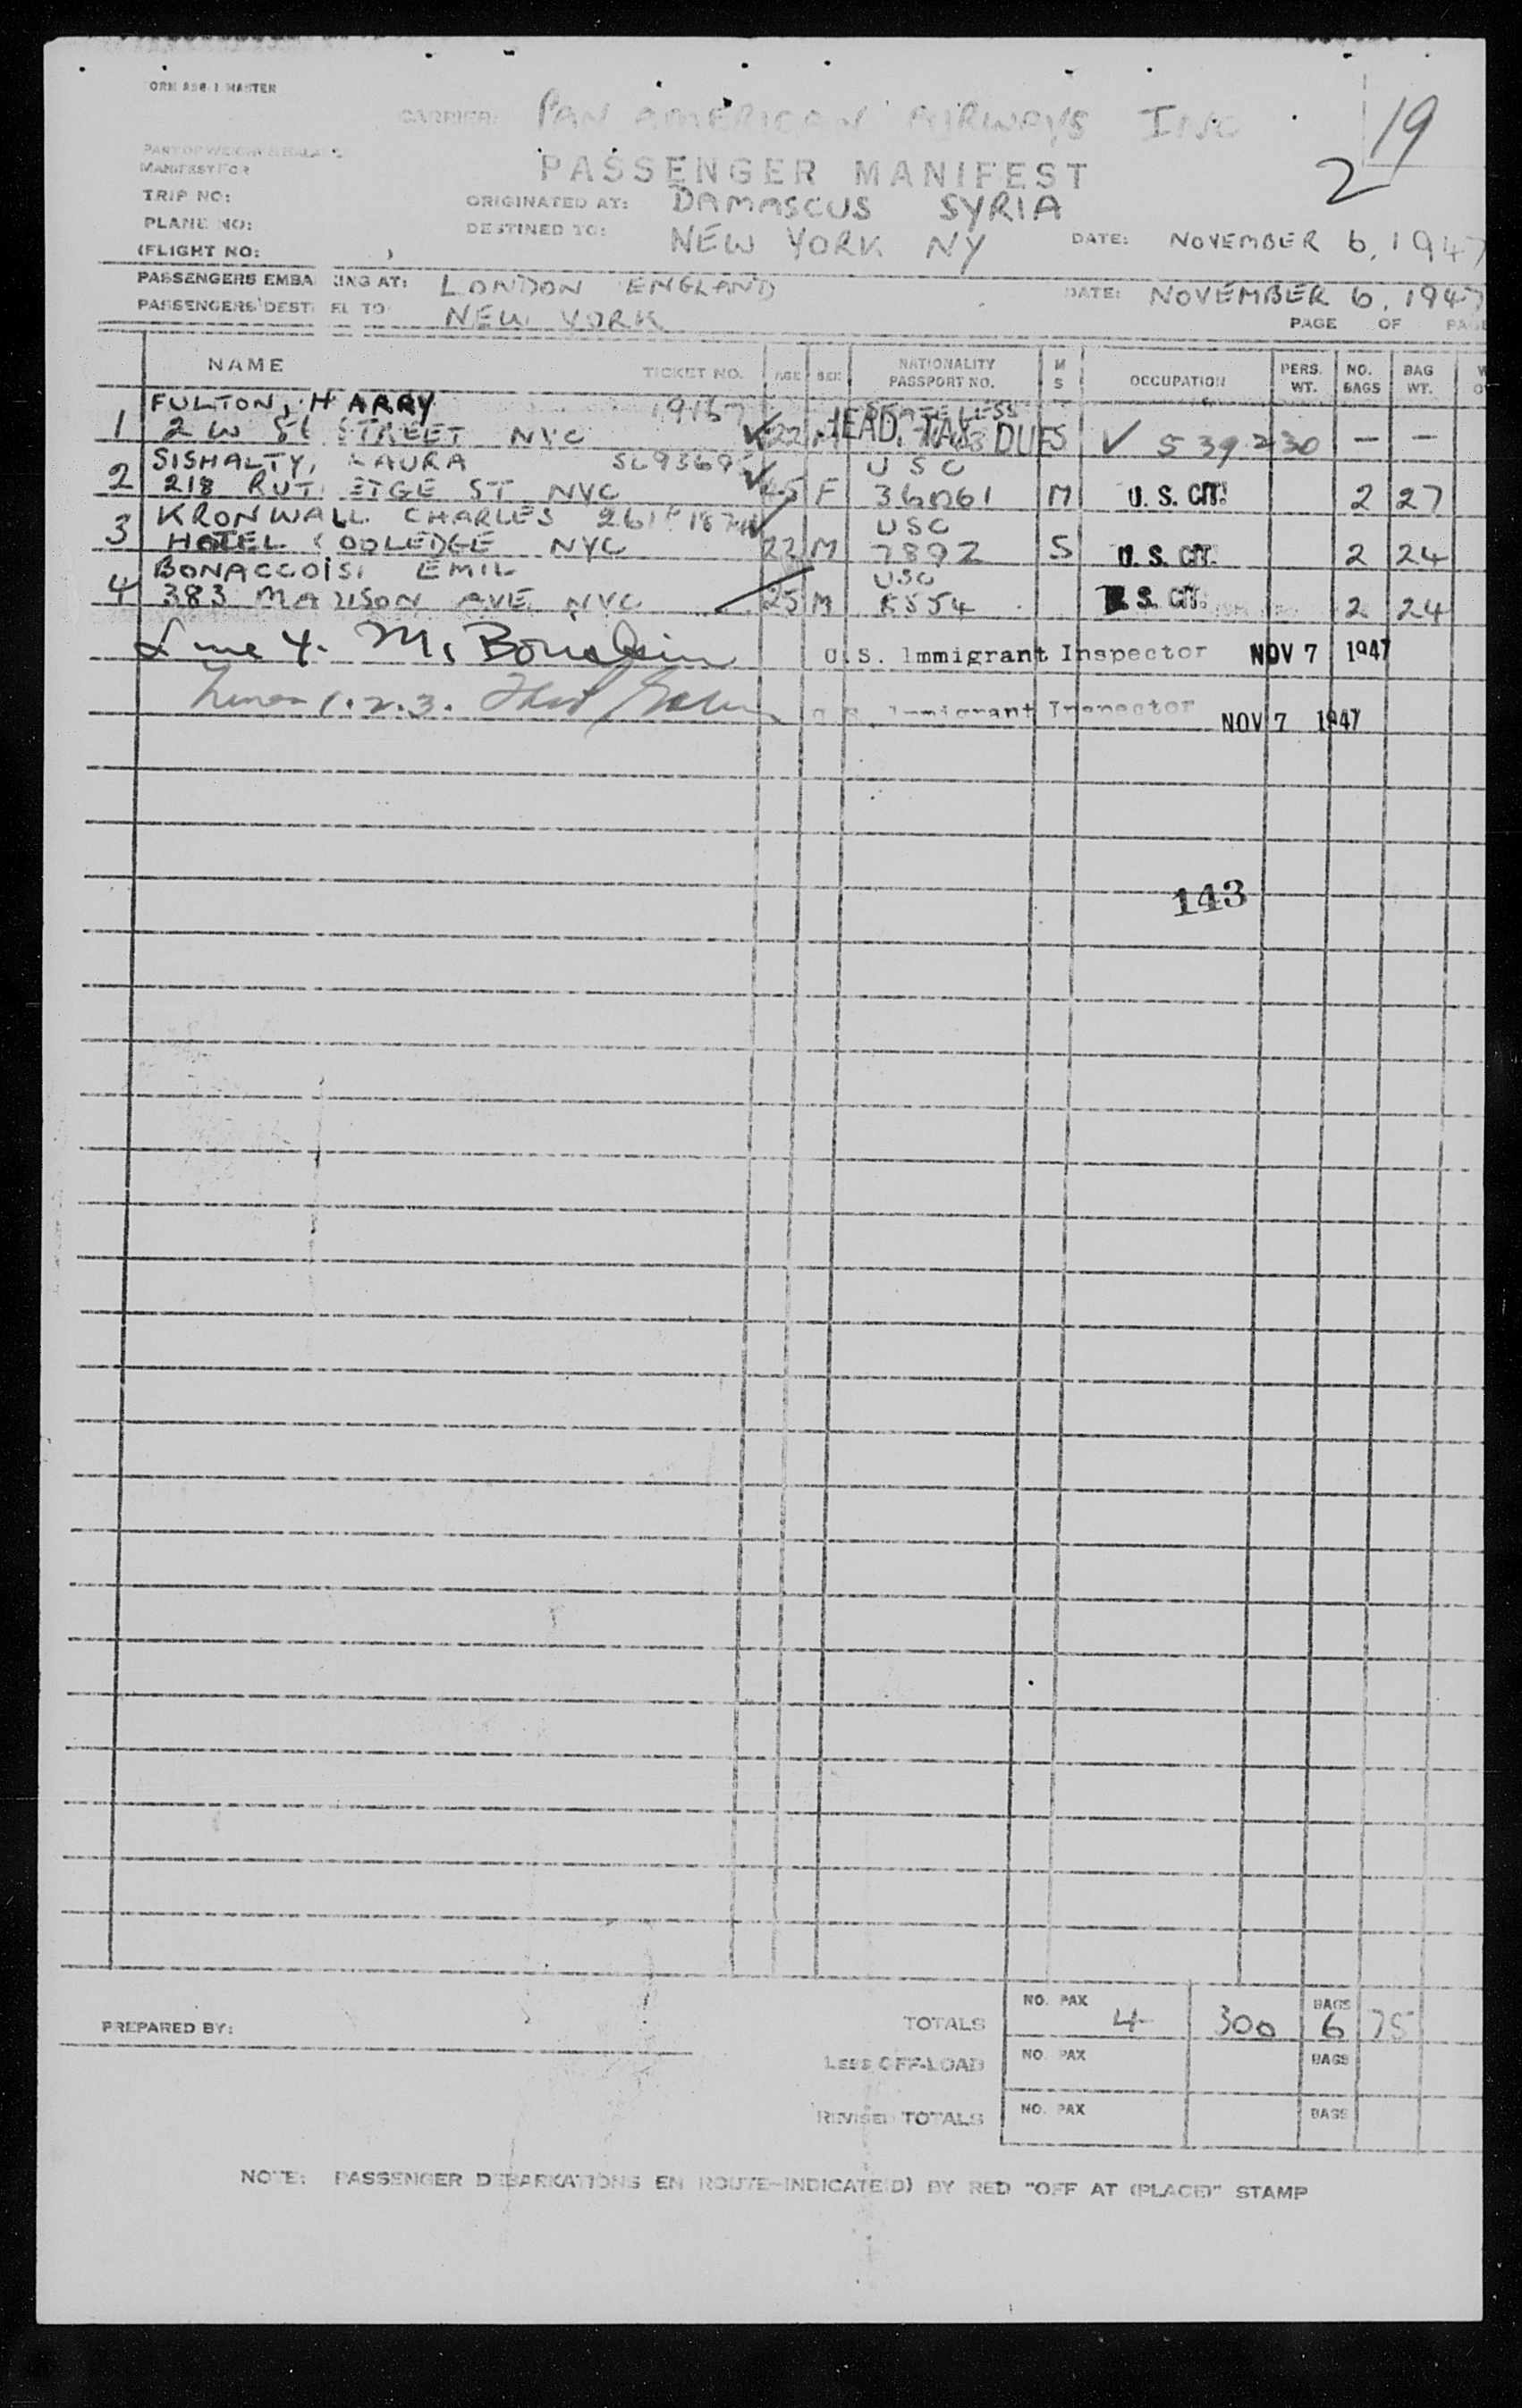 19
CARRIER: PAN AMERICAN AIRWAYS INC
MANIFEST FOR
PASSENGER MANIFEST
2
TRIP NO:
ORIGINATED AT: DAMASCUS SYRIA
PLANE NO:
DESTINED TO: NEW YORK NY DATE: NOVEMBER 6, 1947
(FLIGHT NO: )
PASSENGERS EMBA KING AT: LONDON ENGLAND DATE: NOVEMBER 6, 1947
PASSENGERS DEST TO NEW YORK
PAGE OF PAGE
NAME TICKET NO. AGE SEX NATIONALITY PASSPORT NO. M S OCCUPATION PERS. WT. NO. BAGS BAG WT.
FULTON, HARRY 19167 STATELESS
1 2 W STREET NYC 22 M HEAD TAX DUES 539230 — —
SISHALTY, LAURA USC
2 218 RUT EDGE ST NYC 45 F 36061 M U. S. CIT. 2 27
KRONWALL CHARLES USC
3 HOTEL COOLEDGE NYC 22 M 7892 S U. S. CIT. 2 24
BONACCOISI EMIL USC
4 383 MADISON AVE NYC 25 M S. CIT. 2 24
Line 4. U.S. Immigrant Inspector NOV 7 1947
Lines 1.2.3. U.S. Immigrant Inspector NOV 7 1947
143
PREPARED BY:
TOTALS NO. PAX 4 300 BAGS 6 75
LESS OFF-LOAD NO. PAX BAGS
REVISED TOTALS NO. PAX BAGS
NOTE: PASSENGER DEBARKATIONS EN ROUTE-INDICATE(D) BY RED "OFF AT (PLACE)" STAMP